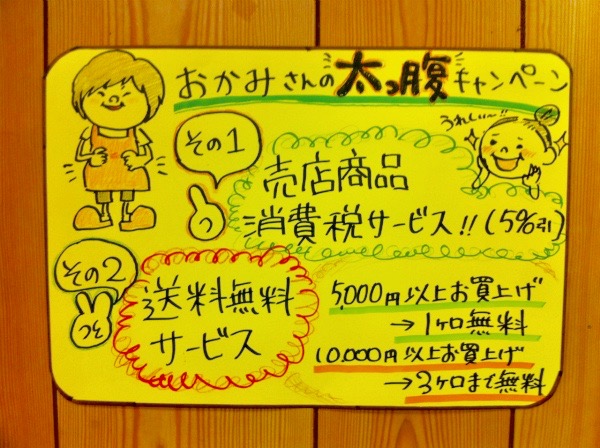 おかみさんの太っ腹キャンペーン
うれしい〜!!
その1
売店商品
消費税サービス!!(5%引)
その2
送料無料
サービス
5,000円以上お買上げ
→1ヶ口無料
10,000円以上お買上げ
→3ヶ口まで無料